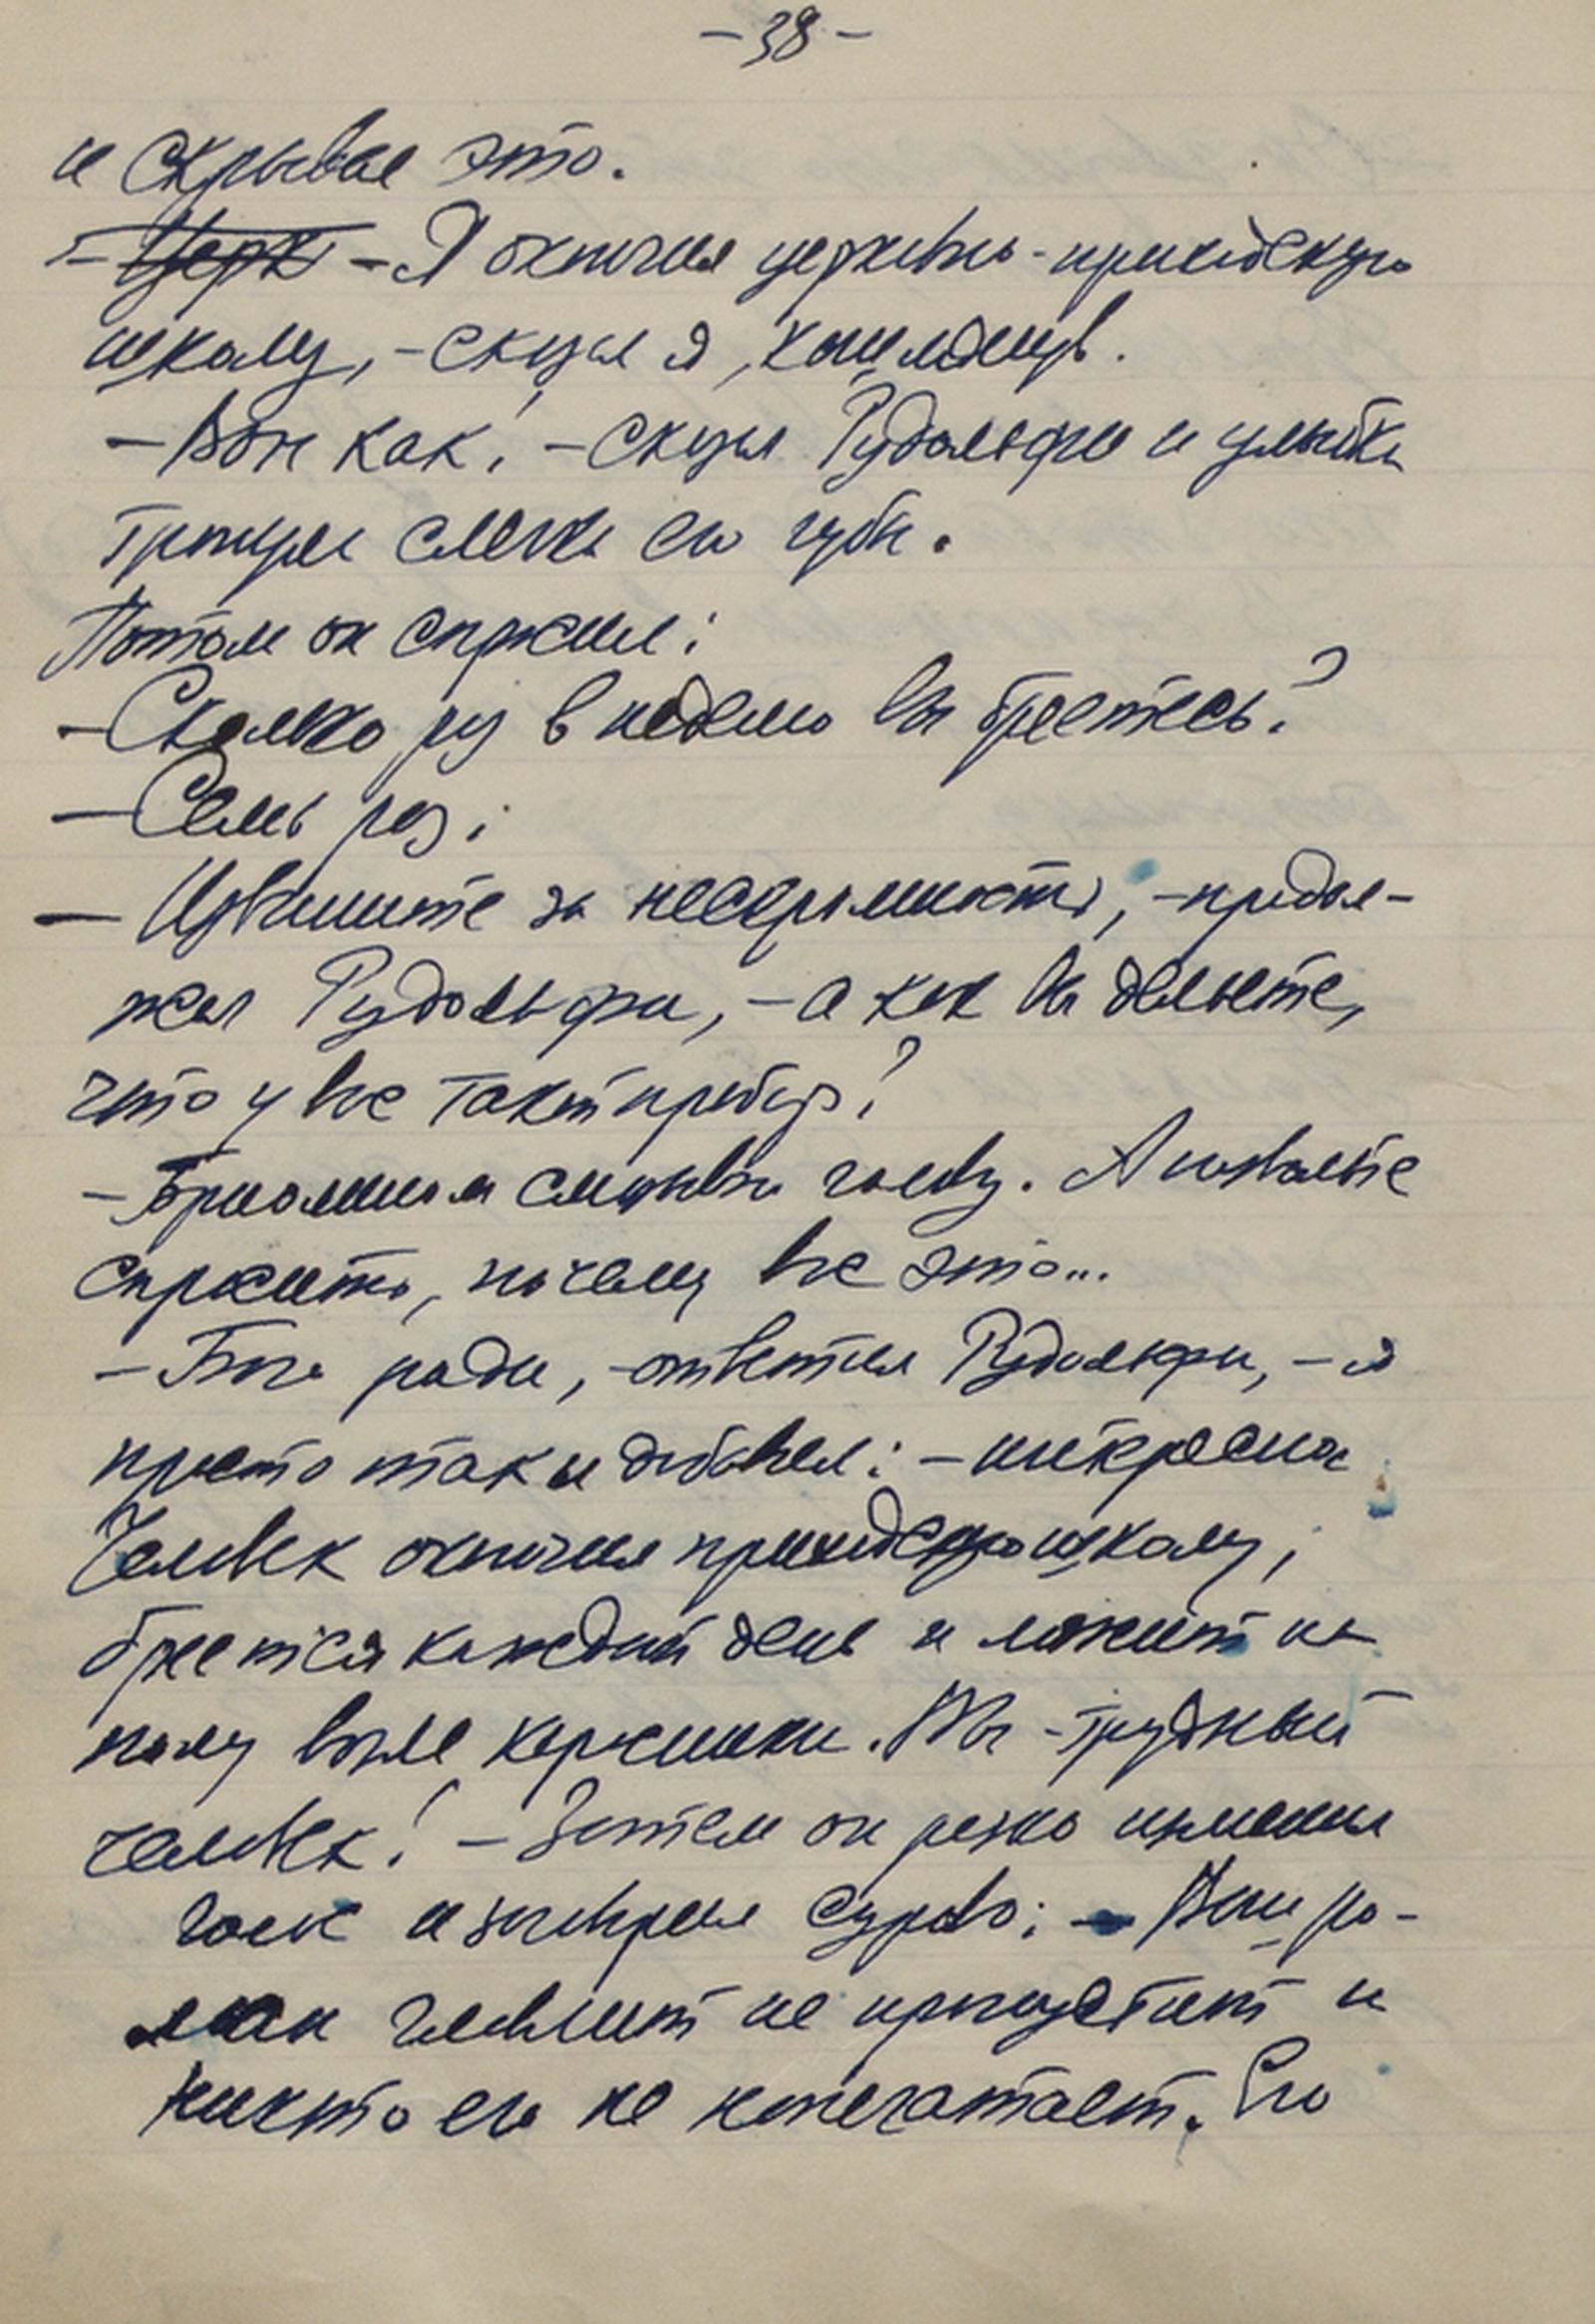 – 38 –
и скрывая это.
– Церк – Я окончил церковно-приходскую
школу, – сказал я, кашлянув.
– Вон как! – сказал Рудольфи и улыбка
тронула слегка его губы.
Потом он спросил:
– Сколько раз в неделю вы бреетесь?
– Семь раз.
– Извините за нескромность, – продол-
жал Рудольфи, – а как вы делаете,
что у вас такой пробор?
– Бриолином смазываю голову. А позвольте
спросить, почему все это...
– Бога ради, – ответил Рудольфи, – я
просто так и добавил: – интересно
Человек окончил приходскую школу,
бреется каждый день и лежит на
полу возле керосинки. Вы – трудный
человек! – Затем он резко изменил
голос и заговорил сурово: – Ваш ро-
ман Главлит не пропустит и
никто его не напечатает. Его